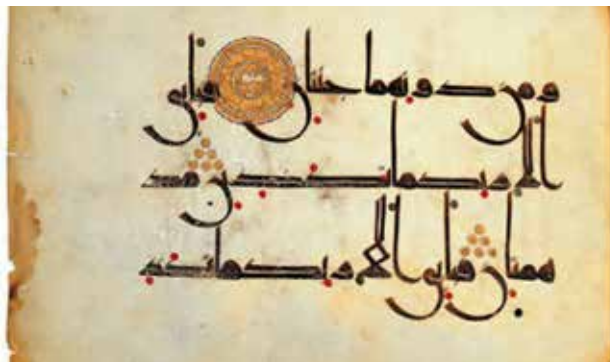 ومن دونهما جنتان فباي
الا ربكما تكذبن مد
همتان فباي الا ربكما تكذ